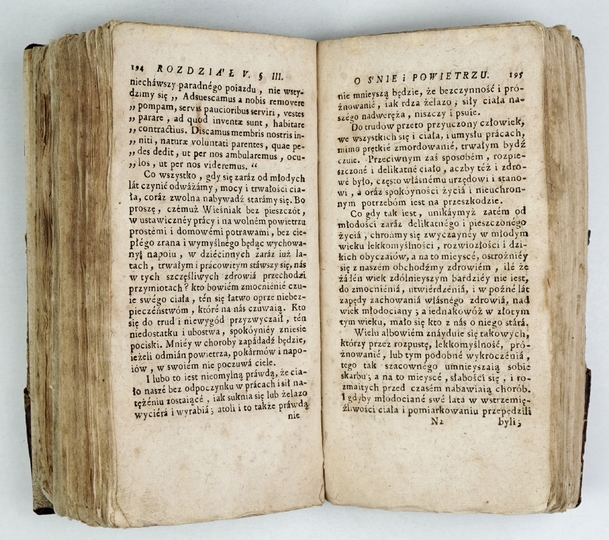 194 ROZDZIAŁ V. § III.
niechawszy paradnego poiazdu, nie wsty-
dzimy się „ Adsuescamus a nobis removere
„ pompam, servis paucioribus serviri, vestes
„ parare, ad quod inventæ sunt, habitare
„ contractius. Discamus membris nostris in-
„ niti, naturæ voluntati parentes, quæ pe-
„ des dedit, ut per nos ambularemus, ocu-
„ los, ut per nos videremus. “
Co wszystko, gdy się zaraz od młodych
lat czynić odważamy, mocy i trwałości cia-
ła, coraz zwolna nabywać staramy się. Bo
proszę, czemuż Wieśniak bez pieszczot,
w ustawiczney pracy i na wolném powietrzu
prostémi i domowémi potrawami, bez cie-
płego zrana i wymyślnego będąc wychowa-
ny napoiu, w dziécinnych zaraz iuż la-
tach, trwałym i pracowitym stawszy się, nas
w tych szczęśliwych zdrowia przechodzi
przymiotach? kto bowiem zmocnienié czu-
ie swégo ciała, tén się łatwo oprze niebez-
pieczeństwóm, które na nas czuwaią. Kto
się do trud i niewygód przyzwyczaił, tén
niedostatku i ubostwa, spokóyniéy zniesie
pociski. Mniéy w choroby zapadać będzie,
ieżeli odmian powietrza, pokarmów i napo-
iów, w swoiém nie poczuwa ciele.
I lubo to iest nieomylną prawdą, że cia-
ło nasze bez odpoczynku w pracach i sił na-
tężéniu zostaiącé, iak suknia się lub żelazo
wyciera i wyrabia; atoli i to także prawdą
nie
O SNIE i POWIETRZU. 195
nie mnieyszą będzie, że bezczynność i pró-
żnowanié, iak rdza żelazo, siły ciała na-
szego nadweręża, niszczy i psuie.
Do trudów przeto przyuczony człowiek,
we wszystkich się i ciała, i umysłu pracach,
mimo prętkié zmordowanié, trwałym bydź
czuie. Przeciwnym zaś sposobém, rozpie-
szczoné i delikatné ciało, aczby téż i zdro-
wé było, często własnému urzędowi i stano-
wi, a oraz spokoyności życia i nieuchron-
nym potrzebóm iest na przeszkodzie.
Co gdy tak iest, unikaymyż zatém od
młodości zaraz delikatnégo i pieszczonégo
życia, chrońmy się zwyczayney w młodym
wieku lekkomyślności, rozwiozłości i dzi-
kich obyczaiów, a na to mieyscé, ostrożniéy
się z naszém obchodźmy zdrowiém, ilé że
żadén wiek zdólnieyszym bardziéy nie iest,
do zmocniénia, utwierdzénia, i w późné lat
zapędy zachowania własnégo zdrowia, nad
wiek młodociany; a iednakowóż w złotym
tym wieku, mało się kto z nas o niego stara.
Wielu albowiém znayduie się takowych,
którzy przez rozpustę, lekkomyślność, pró-
żnowanié, lub tym podobné wykroczénia,
tego tak szacownego umnieyszaią sobie
skarbu; a na to mieyscé, słabości się, i ro-
zmaitych przed czasem nabawiaią chorób.
I gdyby młodociané swé lata w wstrzemię-
źliwości ciała i pomiarkowaniu przepędzili
N2 byli;